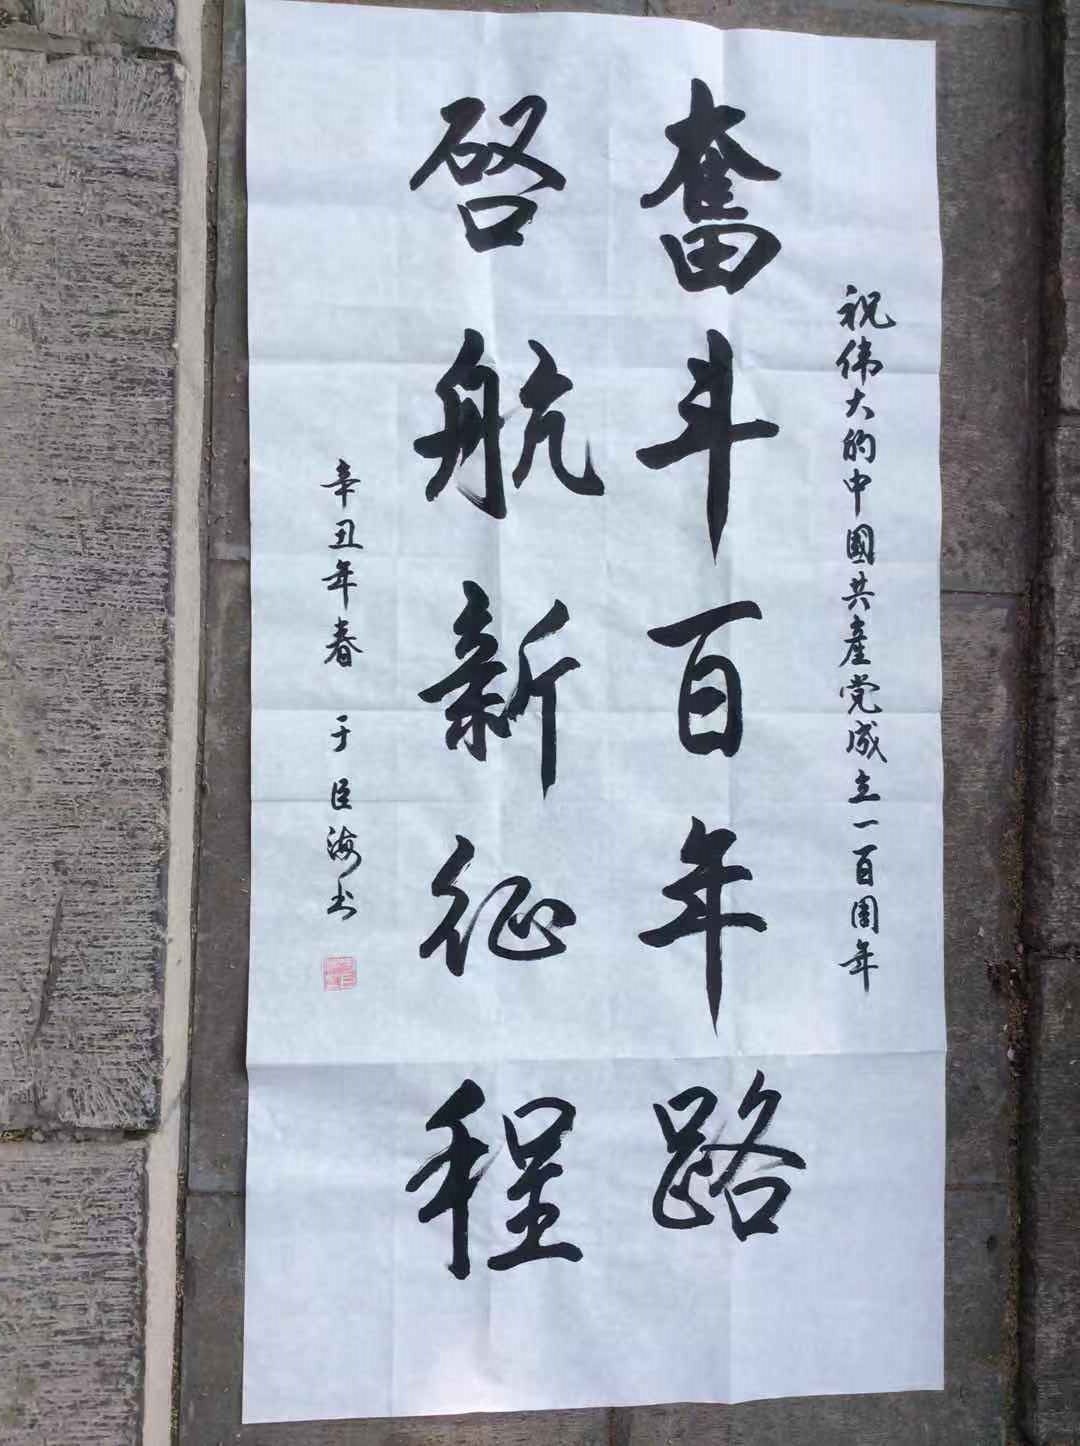 祝伟大的中國共產党成立一百周年
奮斗百年路
啓航新征程
辛丑年春 于臣海书